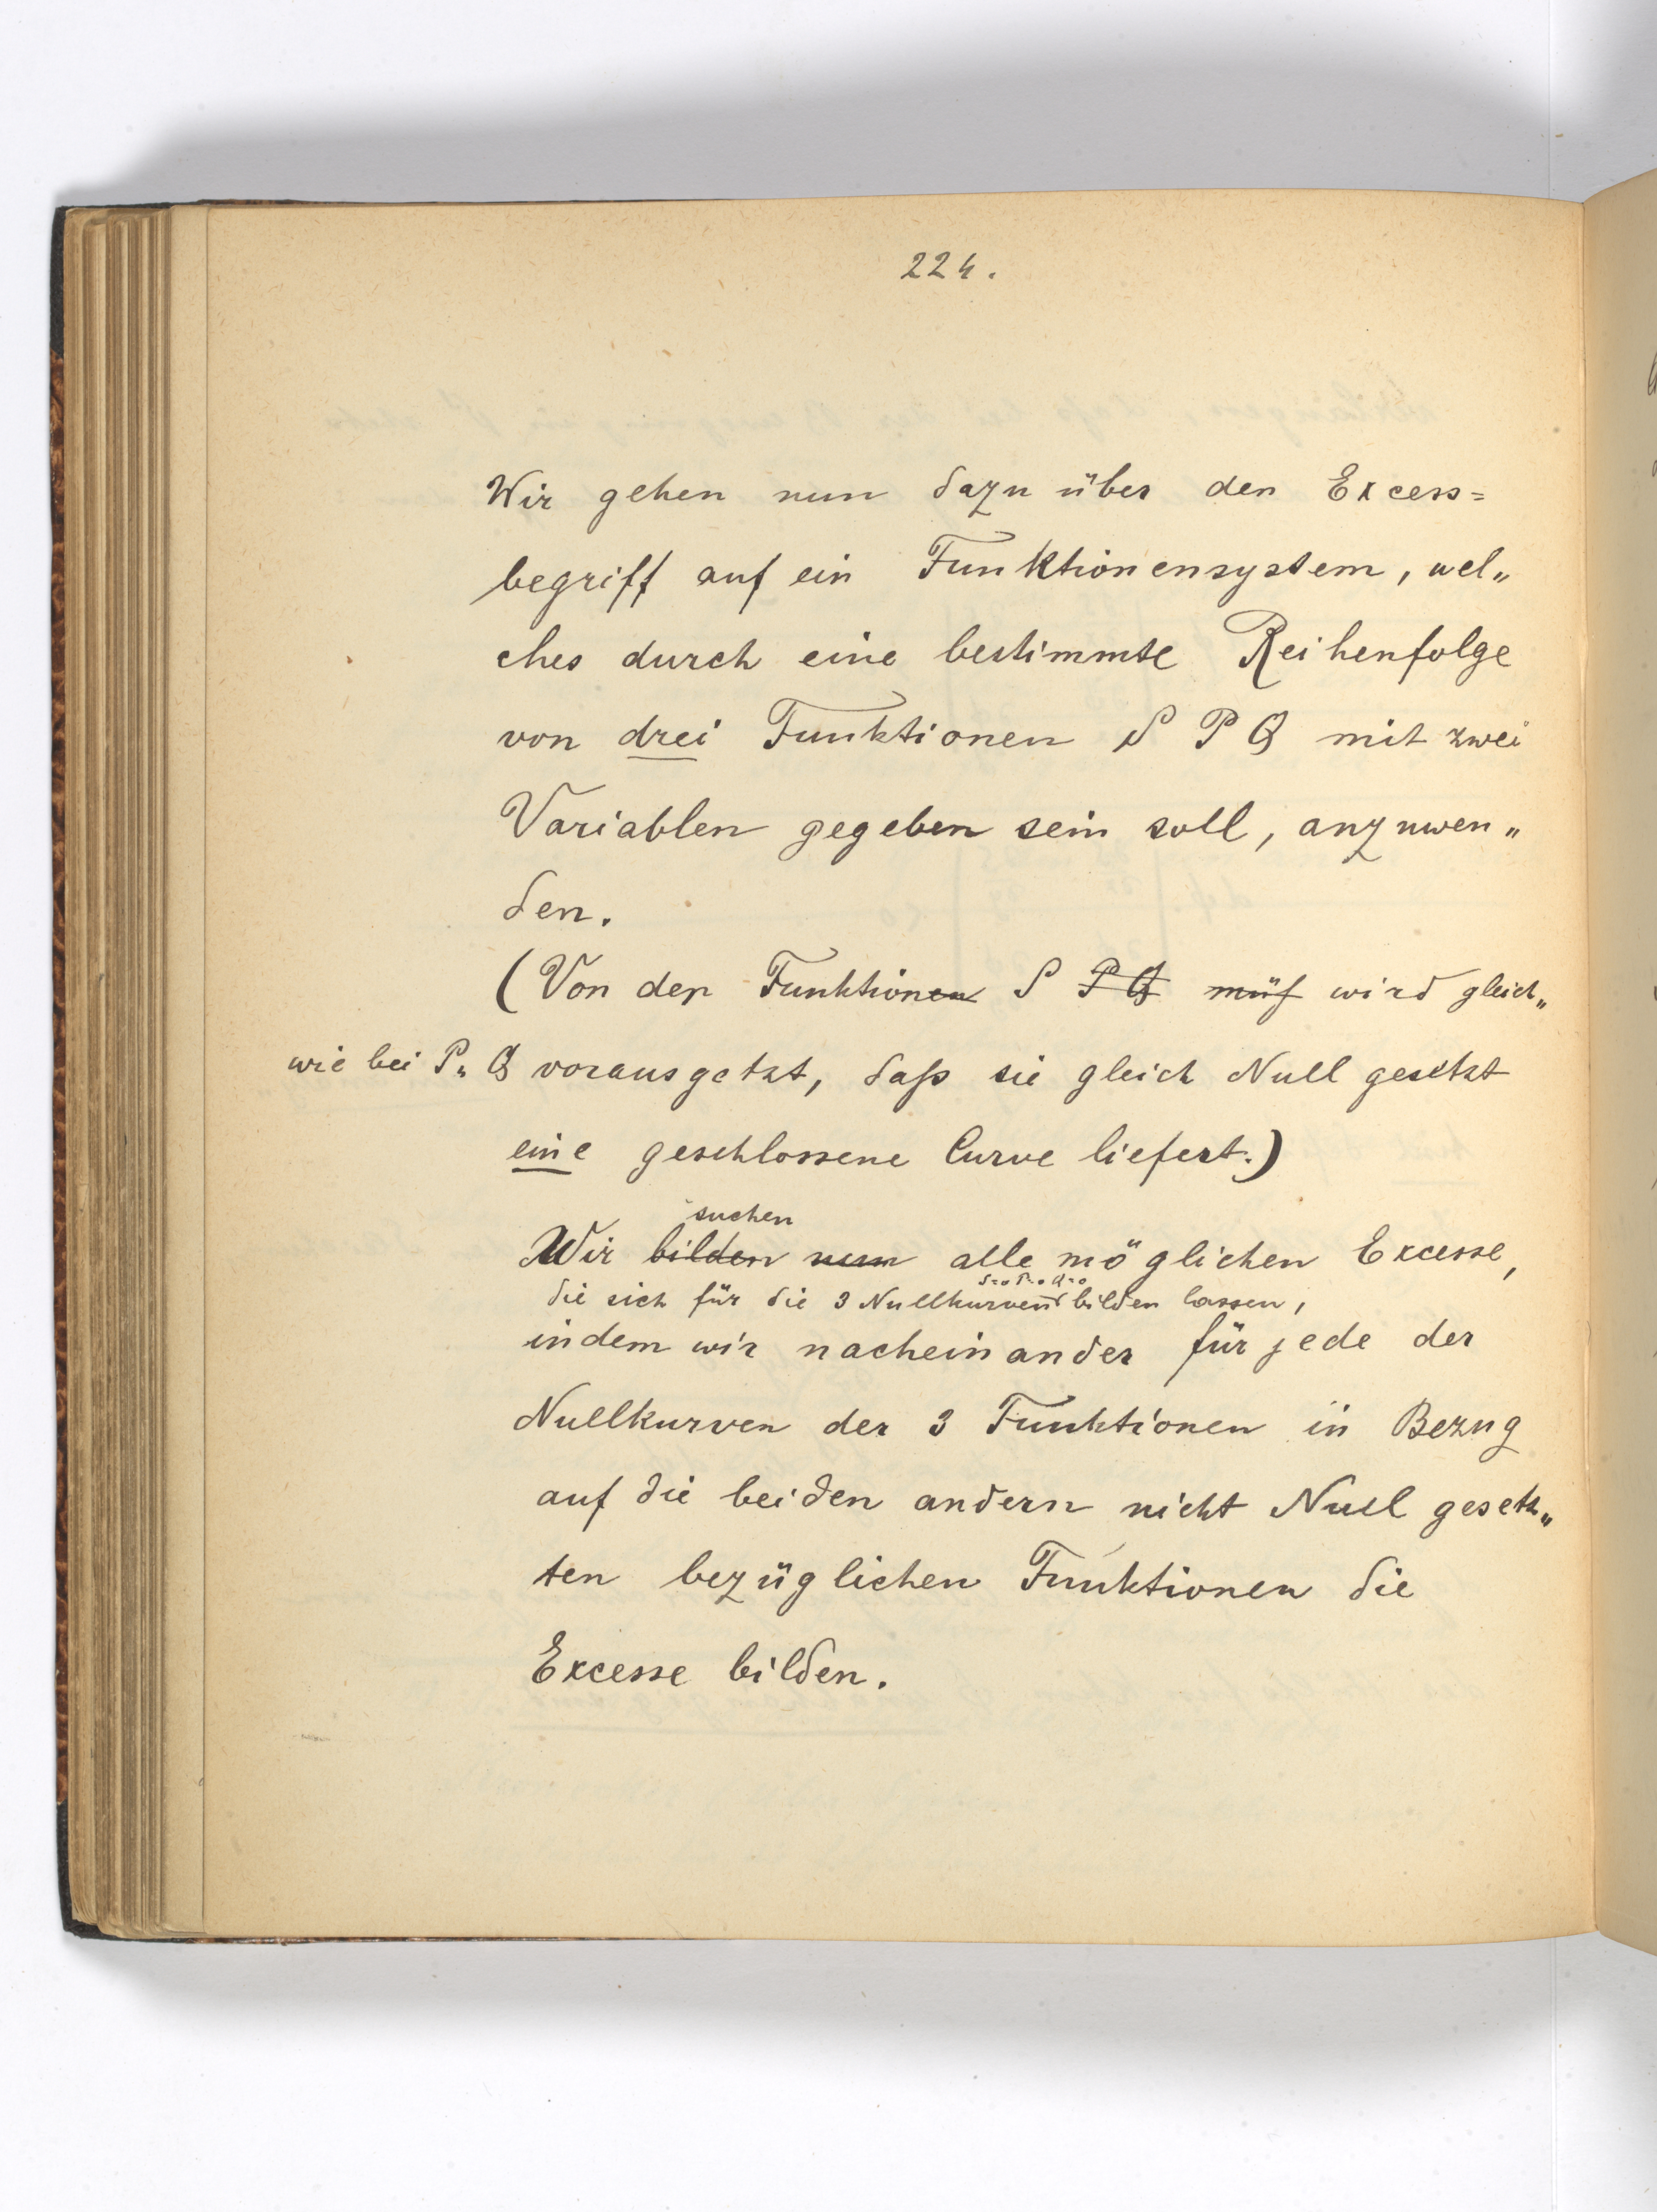 224.
Wir gehen nun dazu über den Excess=
begriff auf ein Funktionensystem, wel„
ches durch eine bestimmte Reihenfolge
von drei Funktionen S P Q mit zwei
Variablen gegeben sein soll, anzuwen„
den.
(Von der Funktionen S P Q muß wird gleich„
wie bei P u Q vorausgetzt, daß sie gleich Null gesetzt
eine geschlossene Curve liefert.)
suchen
Wir bilden nun alle möglichen Excesse,
S=o P=o Q=o
die sich für die 3 Nullkurven bilden lassen,
indem wir nacheinander für jede der
Nullkurven der 3 Funktionen in Bezug
auf die beiden andern nicht Null gesetz„
ten bezüglichen Funktionen die
Excesse bilden.